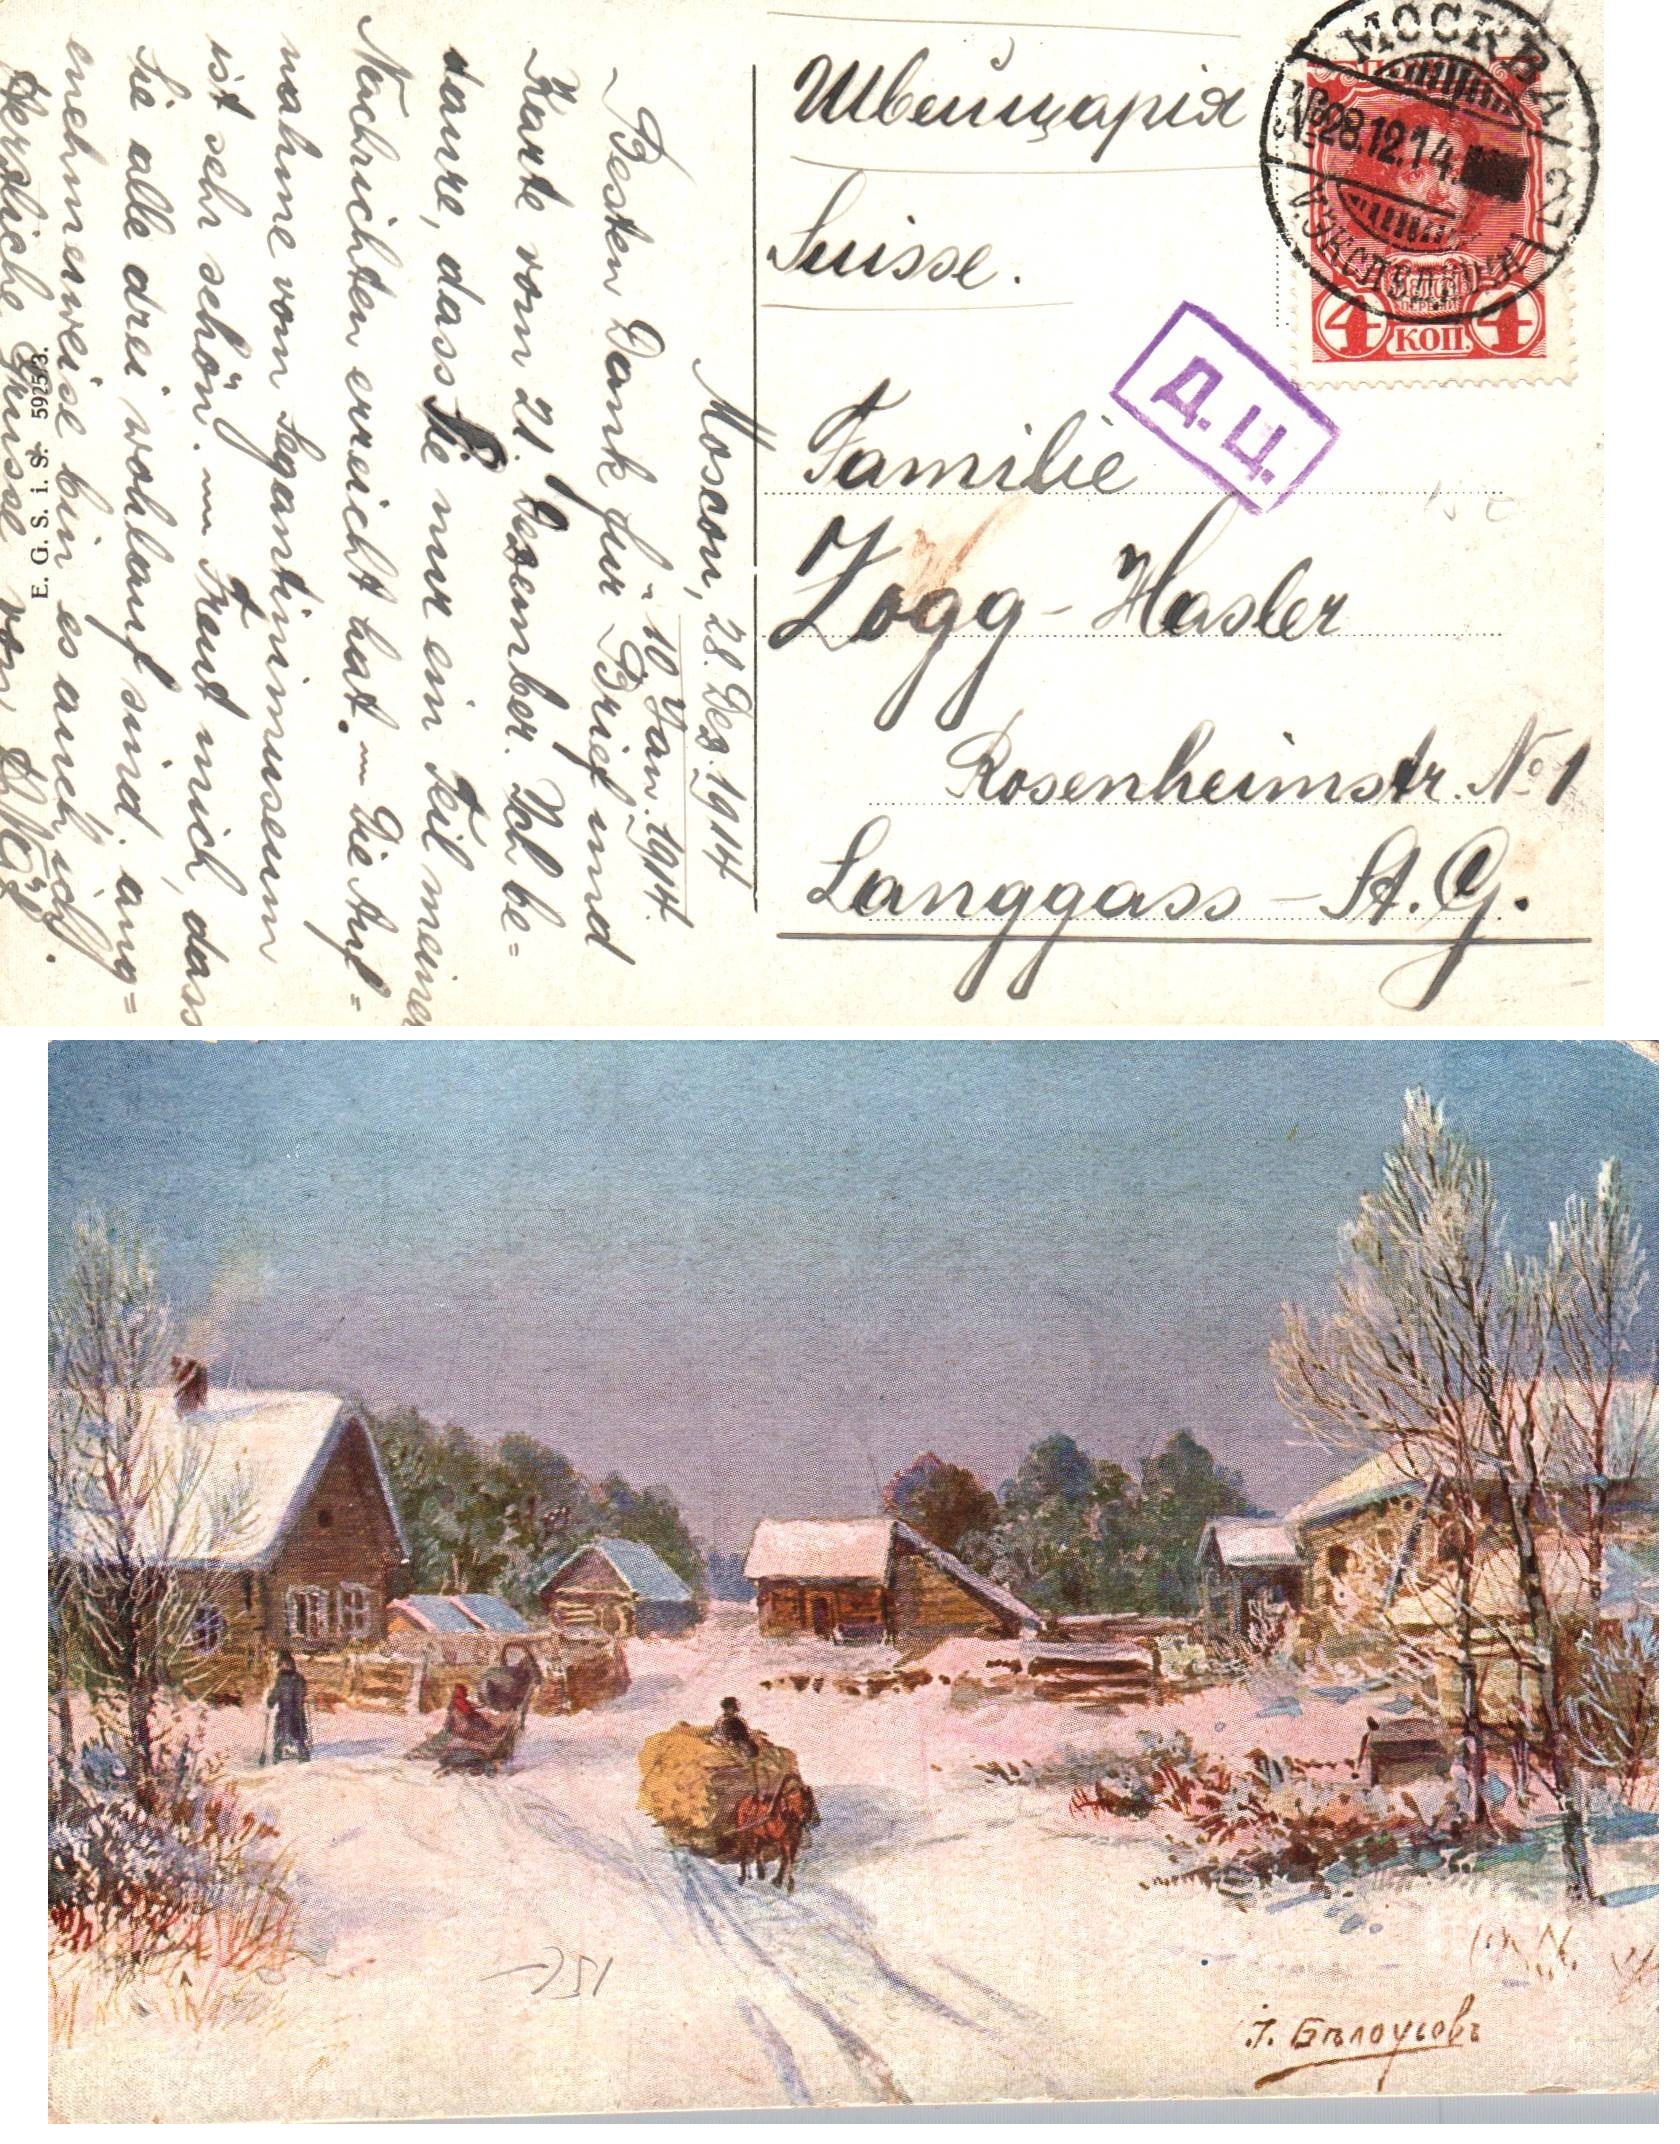 Moscou, 28. Dez. 1914
10. Jan. 1914.
Besten Dank für Brief und
Karte vom 21. Dezember. Ich be=
daure, dass Sie nur ein Teil meiner
Nachrichten erreicht hat. — Die Auf=
nahme vom Segantinimuseum
ist sehr schön. — Freut mich, dass
Sie alle drei wohlauf sind, ang=
enehmerweise bin es auch ich.
Herzliche Grüsse von
E. G. S. i. S. 5925/3.
Швейцарія
Suisse.
Familie
Zogg-Hasler
Rosenheimstr. No 1
Langgass – St. G.
МОСКВА
28.12.14
ЭКСПЕДИЦІЯ
4 КОП. 4
Д. Ц.
251
І. Бѣлоусовъ